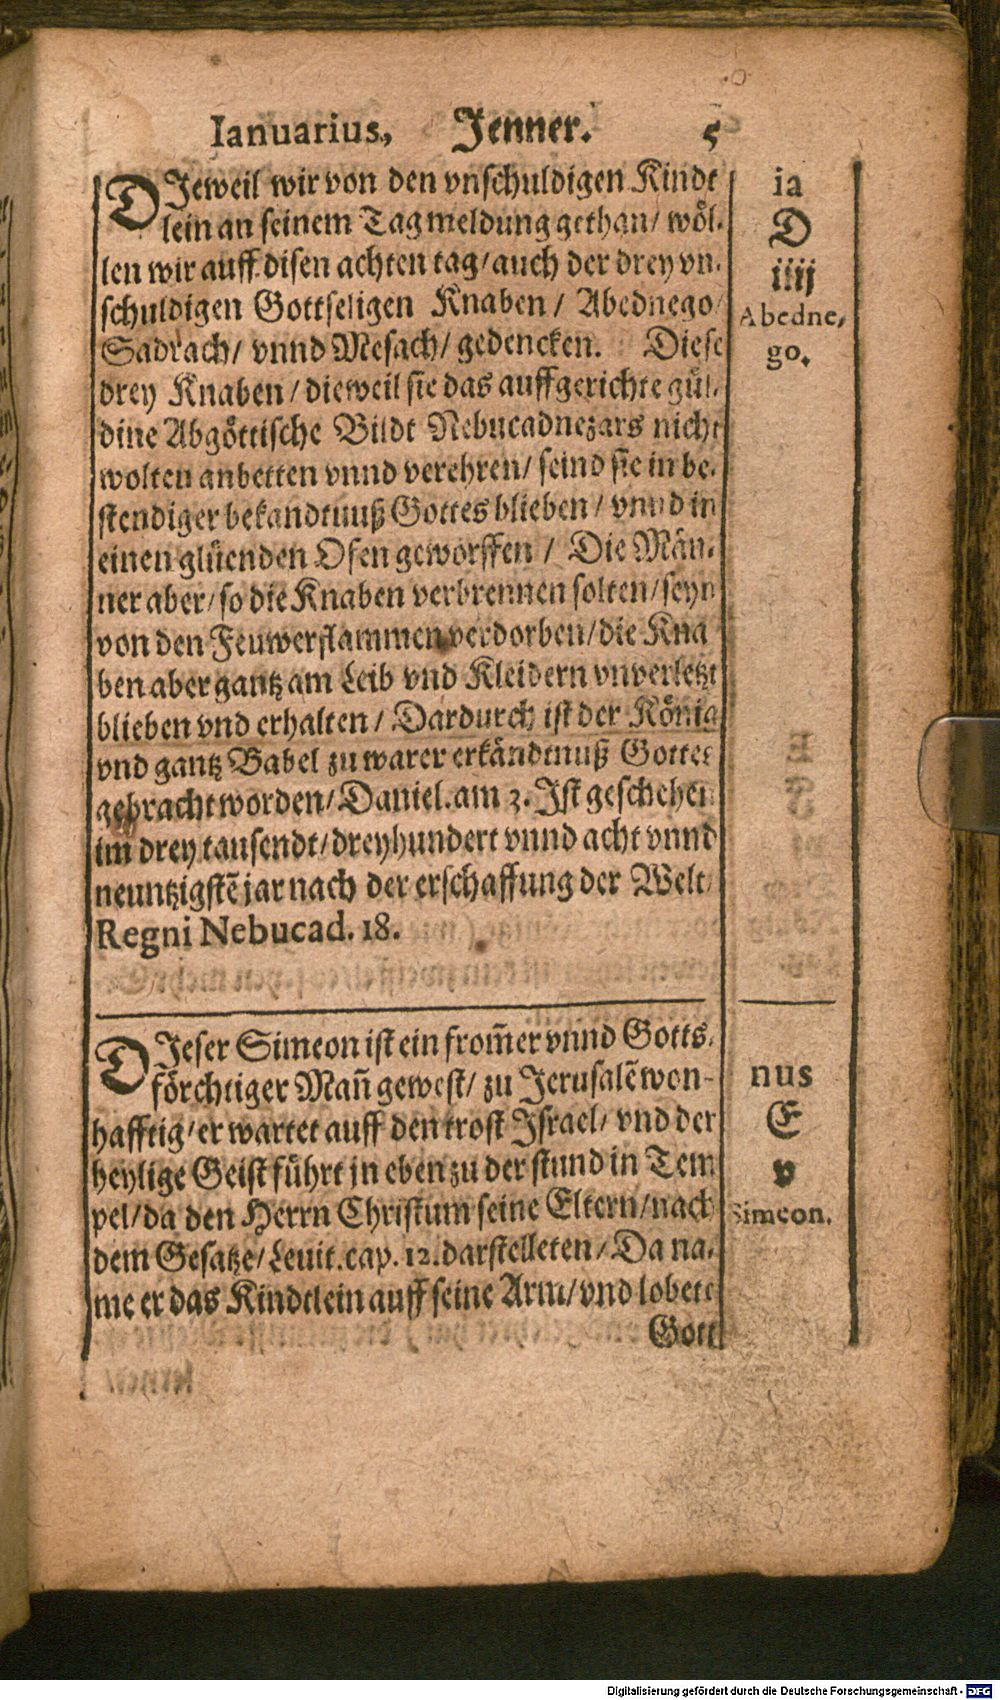 Ianuarius, Jenner. 5
DJeweil wir von den vnschuldigen Kindt
lein an seinem Tag meldung gethan/ wöl-
len wir auff disen achten tag/ auch der drey vn-
schuldigen Gottseligen Knaben / Abednego/
Sadrach/ vnnd Mesach/ gedencken. Diese
drey Knaben / dieweil sie das auffgerichte gül-
dine Abgöttische Bildt Nebucadnezars nicht
wolten anbetten vnnd verehren/ seind sie in be-
stendiger bekandtnuß Gottes blieben / vnnd in
einen glüenden Ofen geworffen / Die Män-
ner aber/ so die Knaben verbrennen solten/ seyn
von den Feuwerflammen verdorben/ die Kna
ben aber gantz am Leib vnd Kleidern vnverletzt
blieben vnd erhalten / Dardurch ist der König
vnd gantz Babel zu warer erkändtnuß Gottes
gebracht worden/ Daniel. am 3. Ist geschehen
im drey tausendt/ dreyhundert vnnd acht vnnd
neuntzigstē jar nach der erschaffung der Welt/
Regni Nebucad. 18.
ia
D
iiij
Abedne,
go.
DJeser Simeon ist ein from̃er vnnd Gotts-
förchtiger Mañ gewest/ zu Jerusalē won-
hafftig/ er wartet auff den trost Israel/ vnd der
heylige Geist führt jn eben zu der stund in Tem
pel/ da den Herrn Christum seine Eltern/ nach
dem Gesatze/ Leuit. cap. 12. darstelleten / Da na-
me er das Kindtlein auff seine Arm/ vnd lobete
Gott
nus
E
v
Simeon.
Digitalisierung gefördert durch die Deutsche Forschungsgemeinschaft - DFG